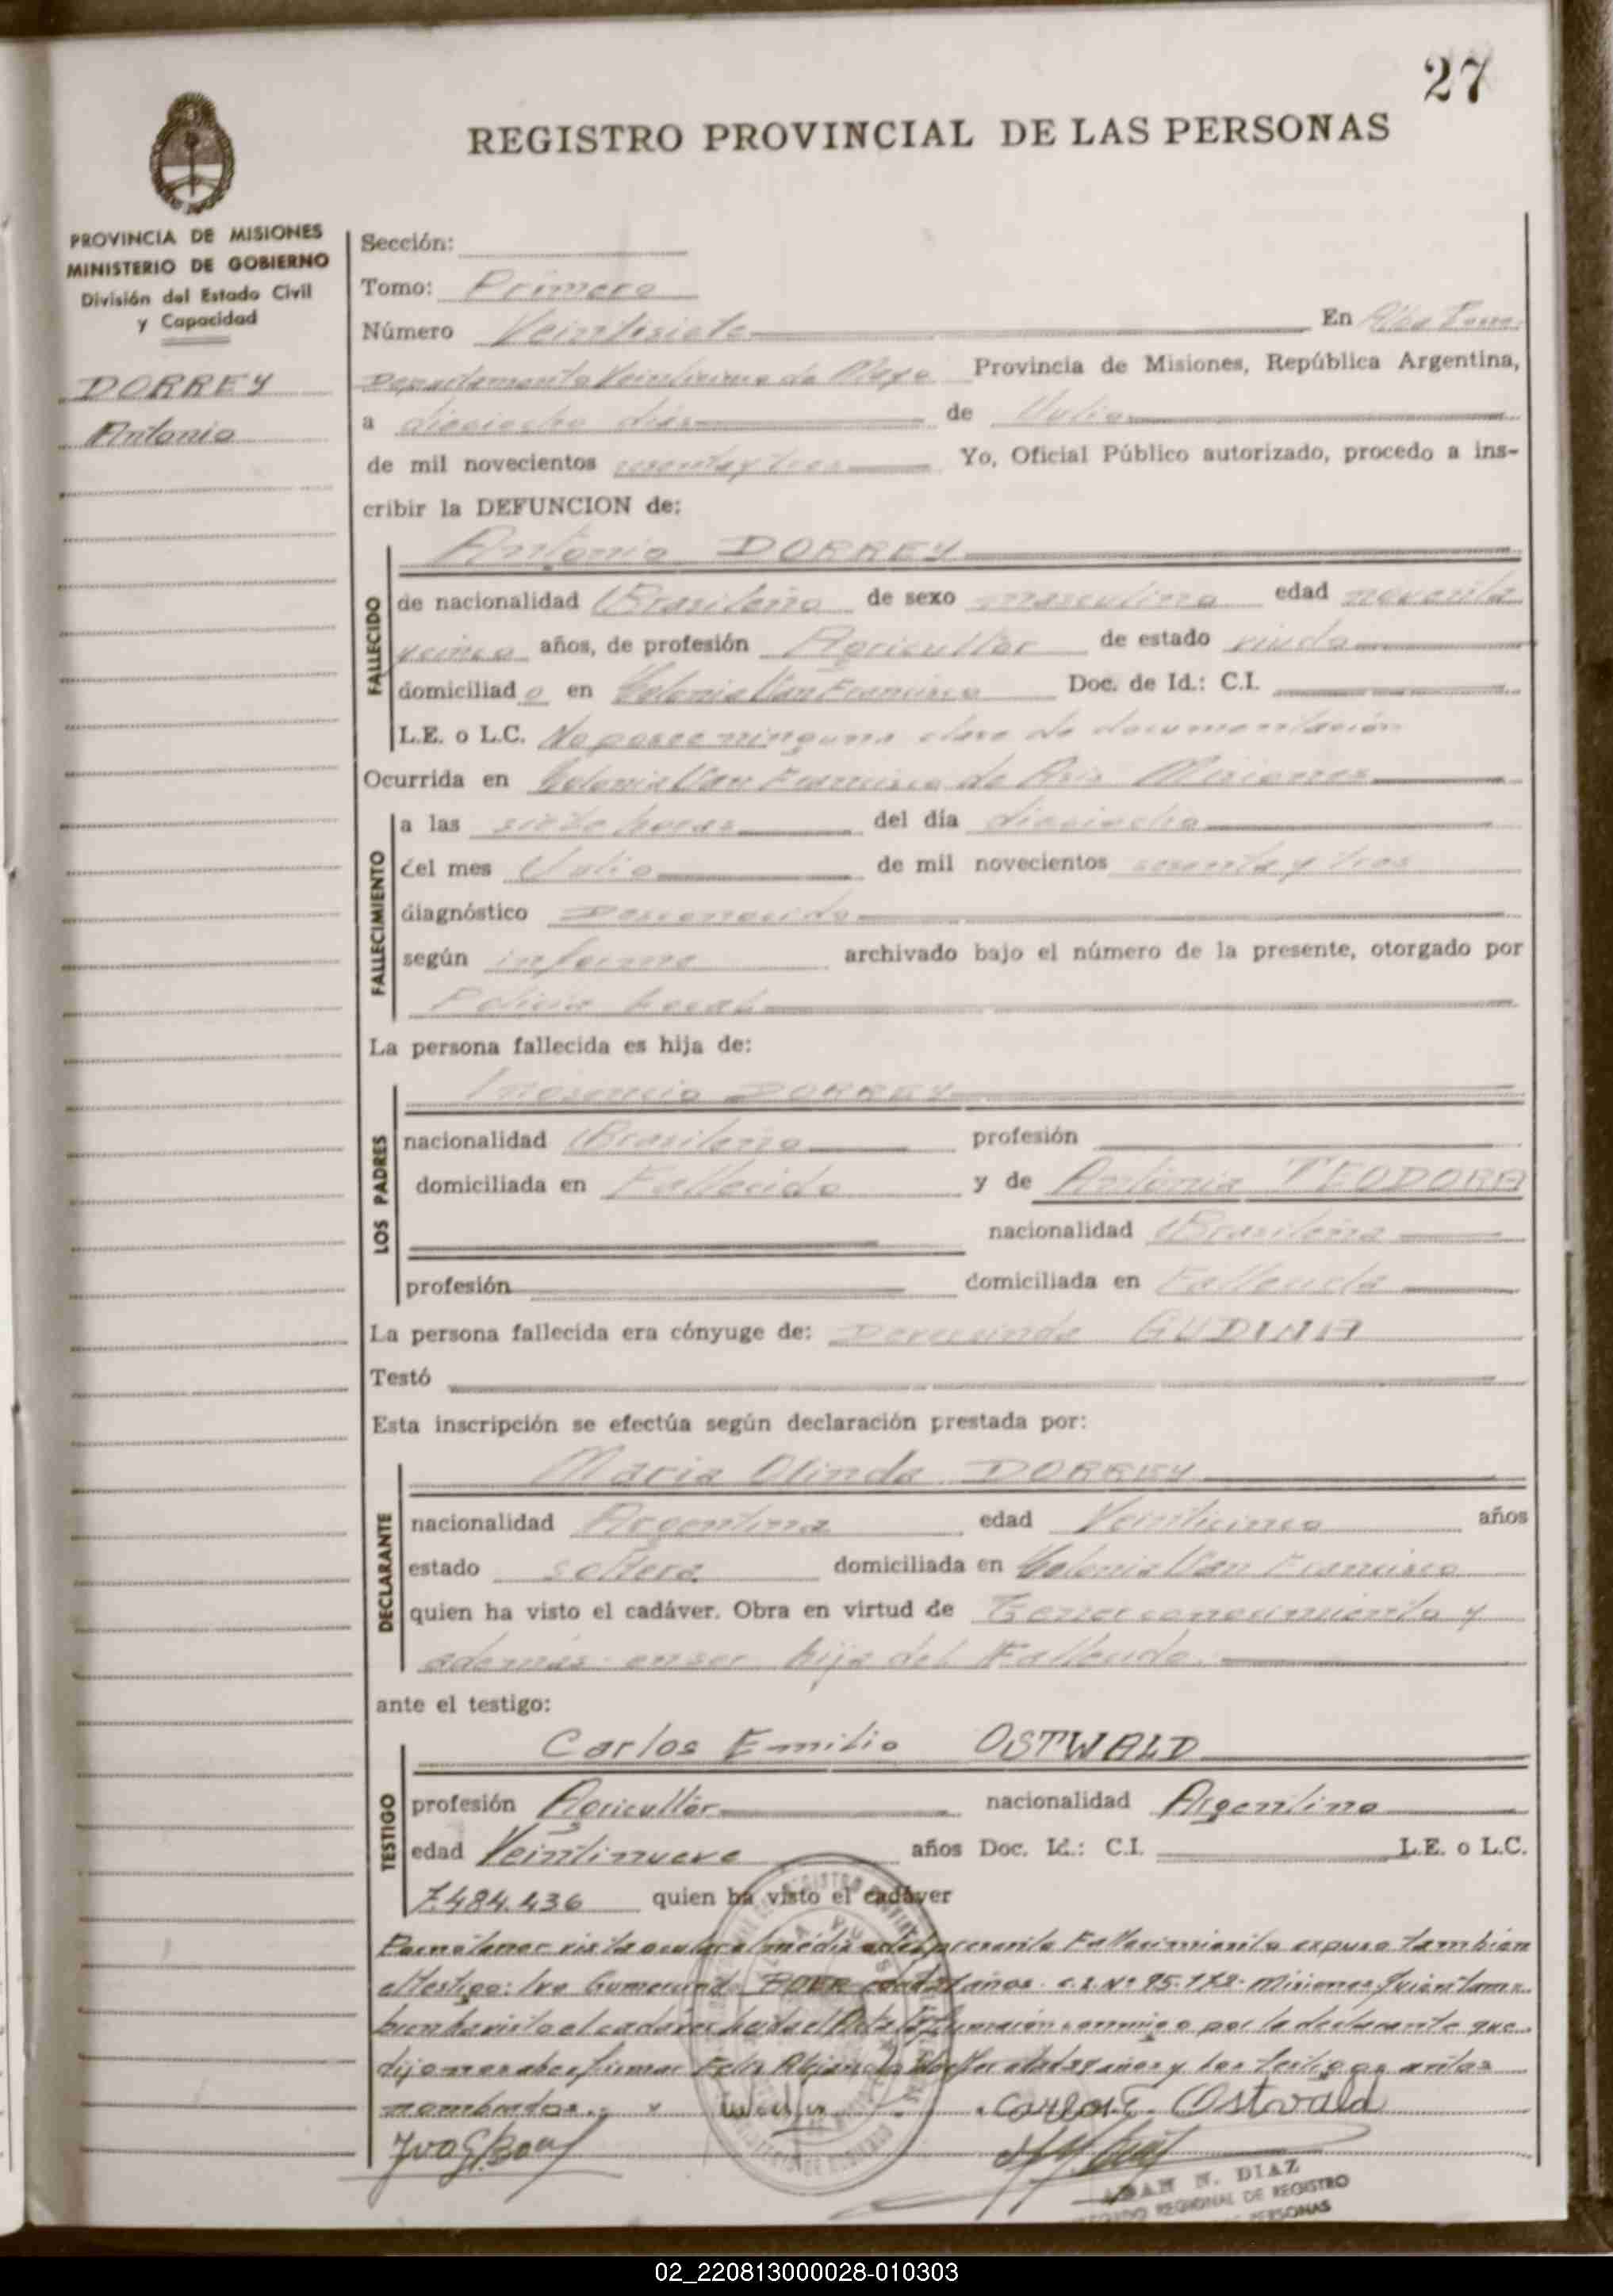 27
REGISTRO PROVINCIAL DE LAS PERSONAS
PROVINCIA DE MISIONES
MINISTERIO DE GOBIERNO
División del Estado Civil
y Capacidad
DORREY
Antonio
Sección:
Tomo: Primero
Número Veintisiete En Alba Posse
Departamento Veinticinco de Mayo Provincia de Misiones, República Argentina,
a dieciocho días de Julio
de mil novecientos sesenta y tres Yo, Oficial Público autorizado, procedo a ins-
cribir la DEFUNCION de:
Antonio DORREY
FALLECIDO
de nacionalidad Brasileño de sexo masculino edad noventa
y cinco años, de profesión Agricultor de estado viudo
domiciliado en Colonia San Francisco Doc. de Id.: C.I.
L.E. o L.C. No posee ninguna clase de documentación
Ocurrida en Colonia San Francisco de Asis Misiones
FALLECIMIENTO
a las siete horas del día dieciocho
del mes Julio de mil novecientos sesenta y tres
diagnóstico Desconocido
según informe archivado bajo el número de la presente, otorgado por
Policía Local
La persona fallecida es hija de:
Inosencio DORREY
LOS PADRES
nacionalidad Brasileño profesión
domiciliada en Fallecido y de Antonia TEODORA
nacionalidad Brasileña
profesión domiciliada en Fallecida
La persona fallecida era cónyuge de: GUDINA
Testó
Esta inscripción se efectúa según declaración prestada por:
Maria Olinda DORREY
DECLARANTE
nacionalidad Argentina edad Veinticinco años
estado soltera domiciliada en Colonia San Francisco
quien ha visto el cadáver. Obra en virtud de Tener conocimiento y
además en ser hija del Fallecido.
ante el testigo:
Carlos Emilio OSTWALD
TESTIGO
profesión Agricultor nacionalidad Argentino
edad Veintinueve años Doc. Id.: C.I. L.E. o L.C.
7.484.436 quien ha visto el cadáver
presente Fallecimiento expuso tambien
el testigo: Ivo años C.I. Nº 95.172 Misiones Quien tam
bien ha visto el cadáver conmigo por la declarante que
dijo no saber firmar Felix años y los testigos antes
nombrados.
Carlos E. Ostwald
ADAN N. DIAZ
REGIONAL DE REGISTRO
PERSONAS
02_220813000028-010303